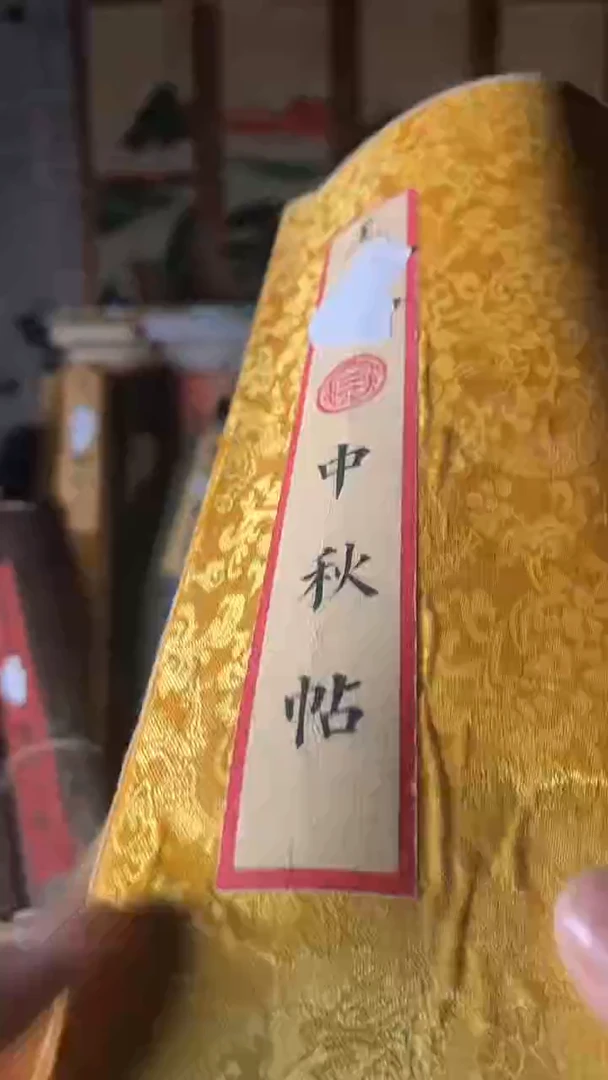 中秋帖